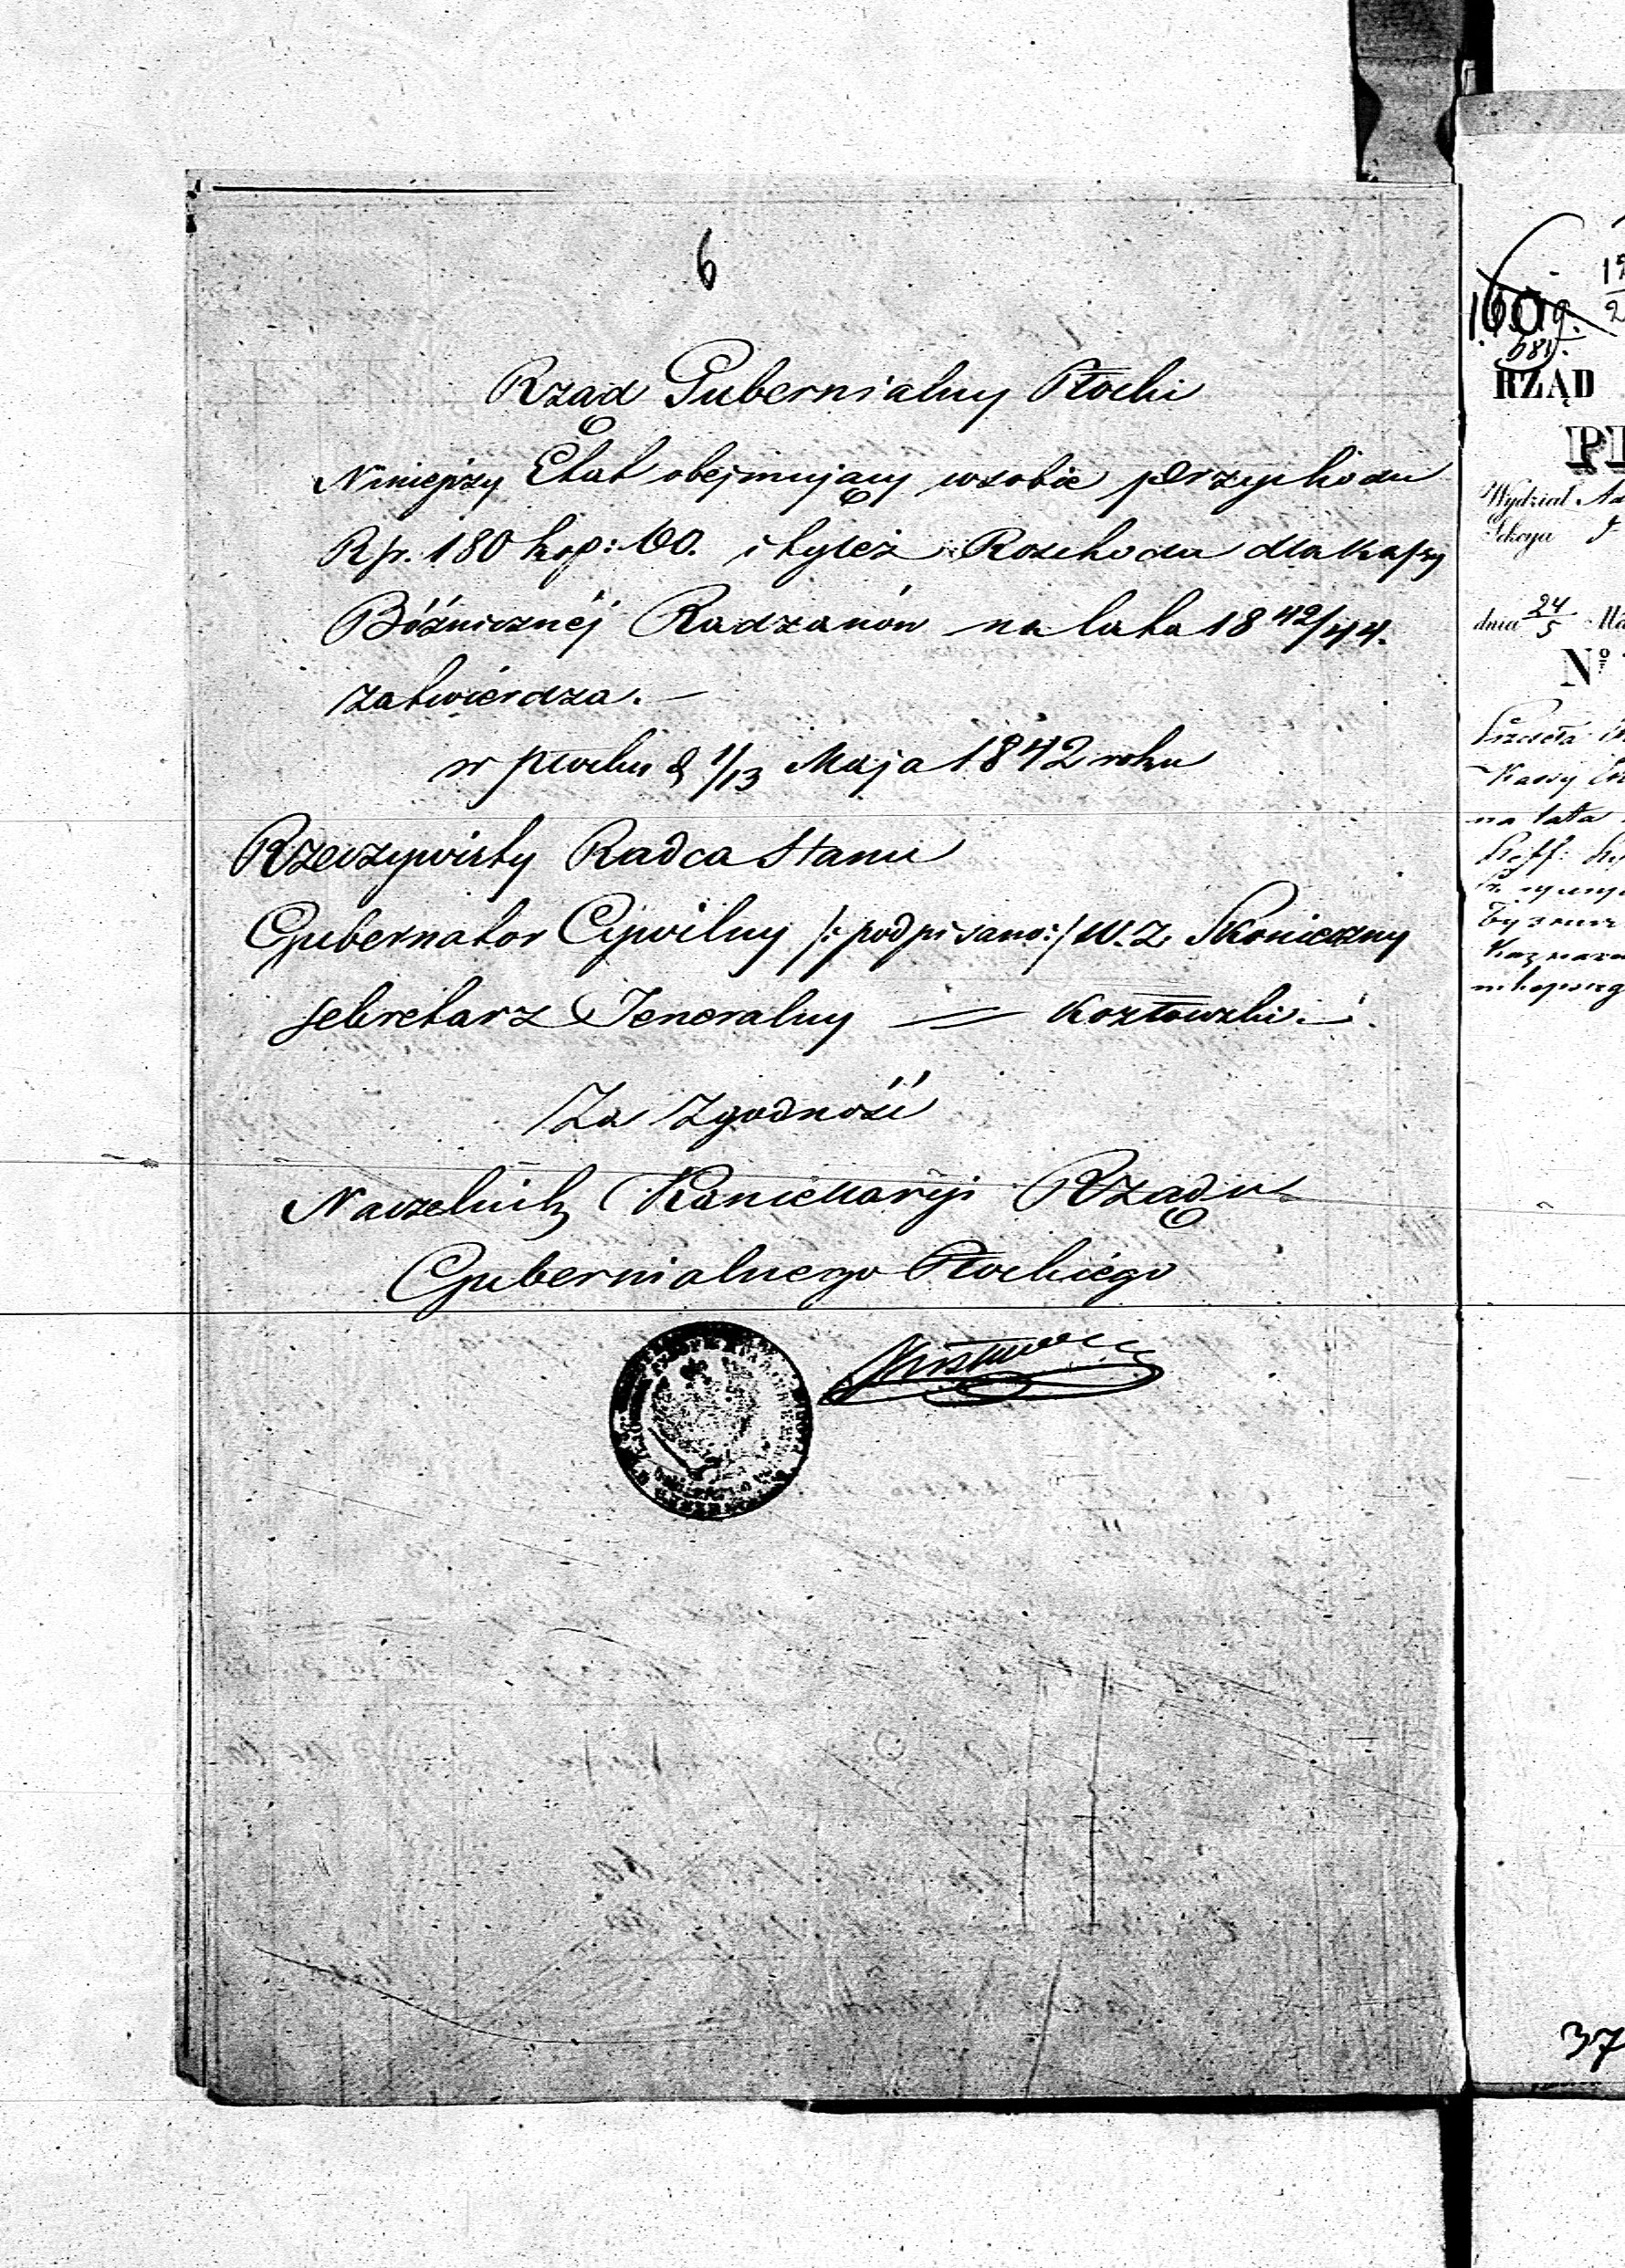 6
Rząd Gubernialny Płocki
Niniejszy Etat obejmujący wsobie przychodu
Rs. 180 kop: 60. i tyleż Rozchodu dla Kassy
Bóżnicznéj Radzanów na lata 18 42/44.
zatwierdza. —
w Płocku d 1/13 Maja 1842 roku
Rzeczywisty Radca Stanu
Gubernator Cywilny /: podpisano :/ W. Z. Skonieczny
Sekretarz Jeneralny — // — Kozłowski
Za Zgodność
Naczelnik Kancellaryi Rządu
Gubernialnego Płockiego
RZĄD
Wydział
Sekcya
dnia 24/5
Nº
na lata
37